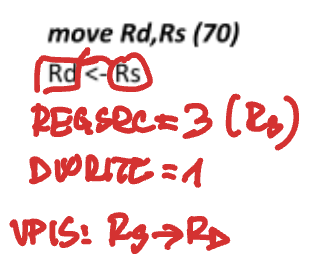 move Rd,Rs (70)
Rd <- Rs
REGSRC = 3 (Rs)
DWRITE = 1
VPIS: Rs → RD